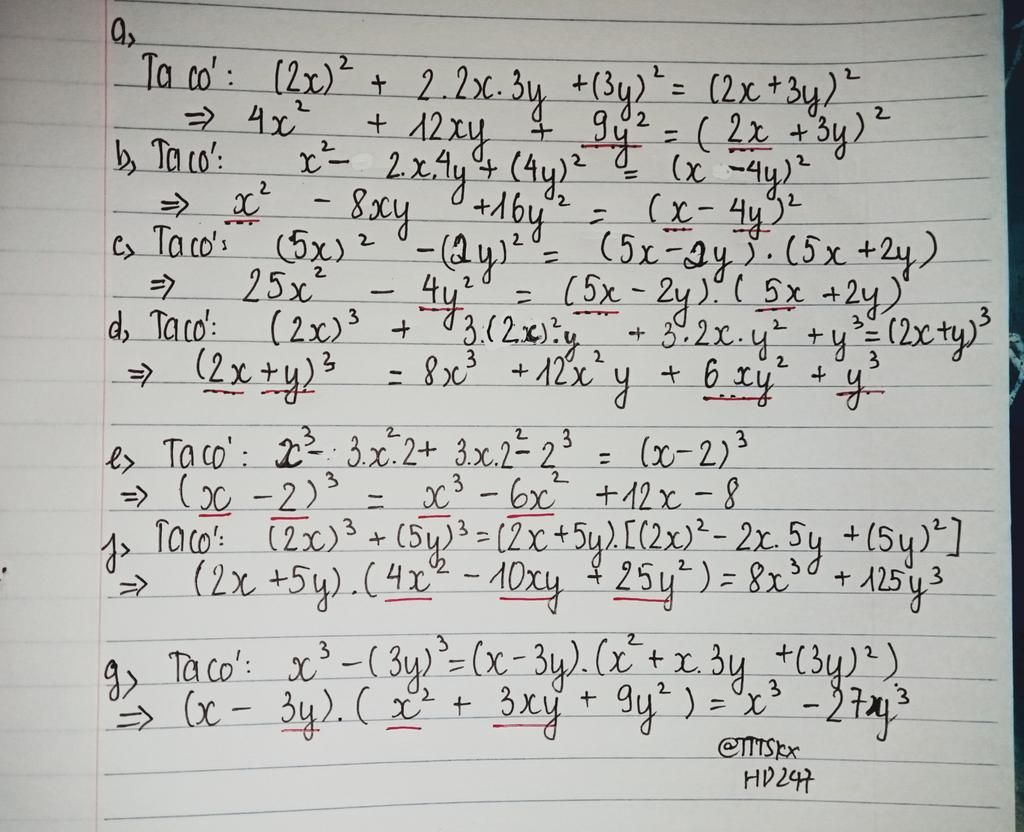 a,
Ta có: (2x)² + 2.2x.3y +(3y)² = (2x+3y)²
⇒ 4x² + 12xy + 9y² = (2x + 3y)²
b, Ta có: x² - 2.x.4y + (4y)² = (x - 4y)²
⇒ x² - 8xy + 16y² = (x - 4y)²
c, Ta có: (5x)² - (2y)² = (5x - 2y).(5x + 2y)
⇒ 25x² - 4y² = (5x - 2y).(5x + 2y)
d, Ta có: (2x)³ + 3.(2x)².y + 3.2x.y² + y³ = (2x+y)³
⇒ (2x + y)³ = 8x³ + 12x²y + 6xy² + y³
e, Ta có: x³ - 3.x².2 + 3.x.2² - 2³ = (x - 2)³
⇒ (x - 2)³ = x³ - 6x² + 12x - 8
f, Ta có: (2x)³ + (5y)³ = (2x + 5y).[(2x)² - 2x.5y + (5y)²]
⇒ (2x + 5y).(4x² - 10xy + 25y²) = 8x³ + 125y³
g, Ta có: x³ - (3y)³ = (x - 3y).(x² + x.3y + (3y)²)
⇒ (x - 3y).(x² + 3xy + 9y²) = x³ - 27y³
@TTTSkx
HD247